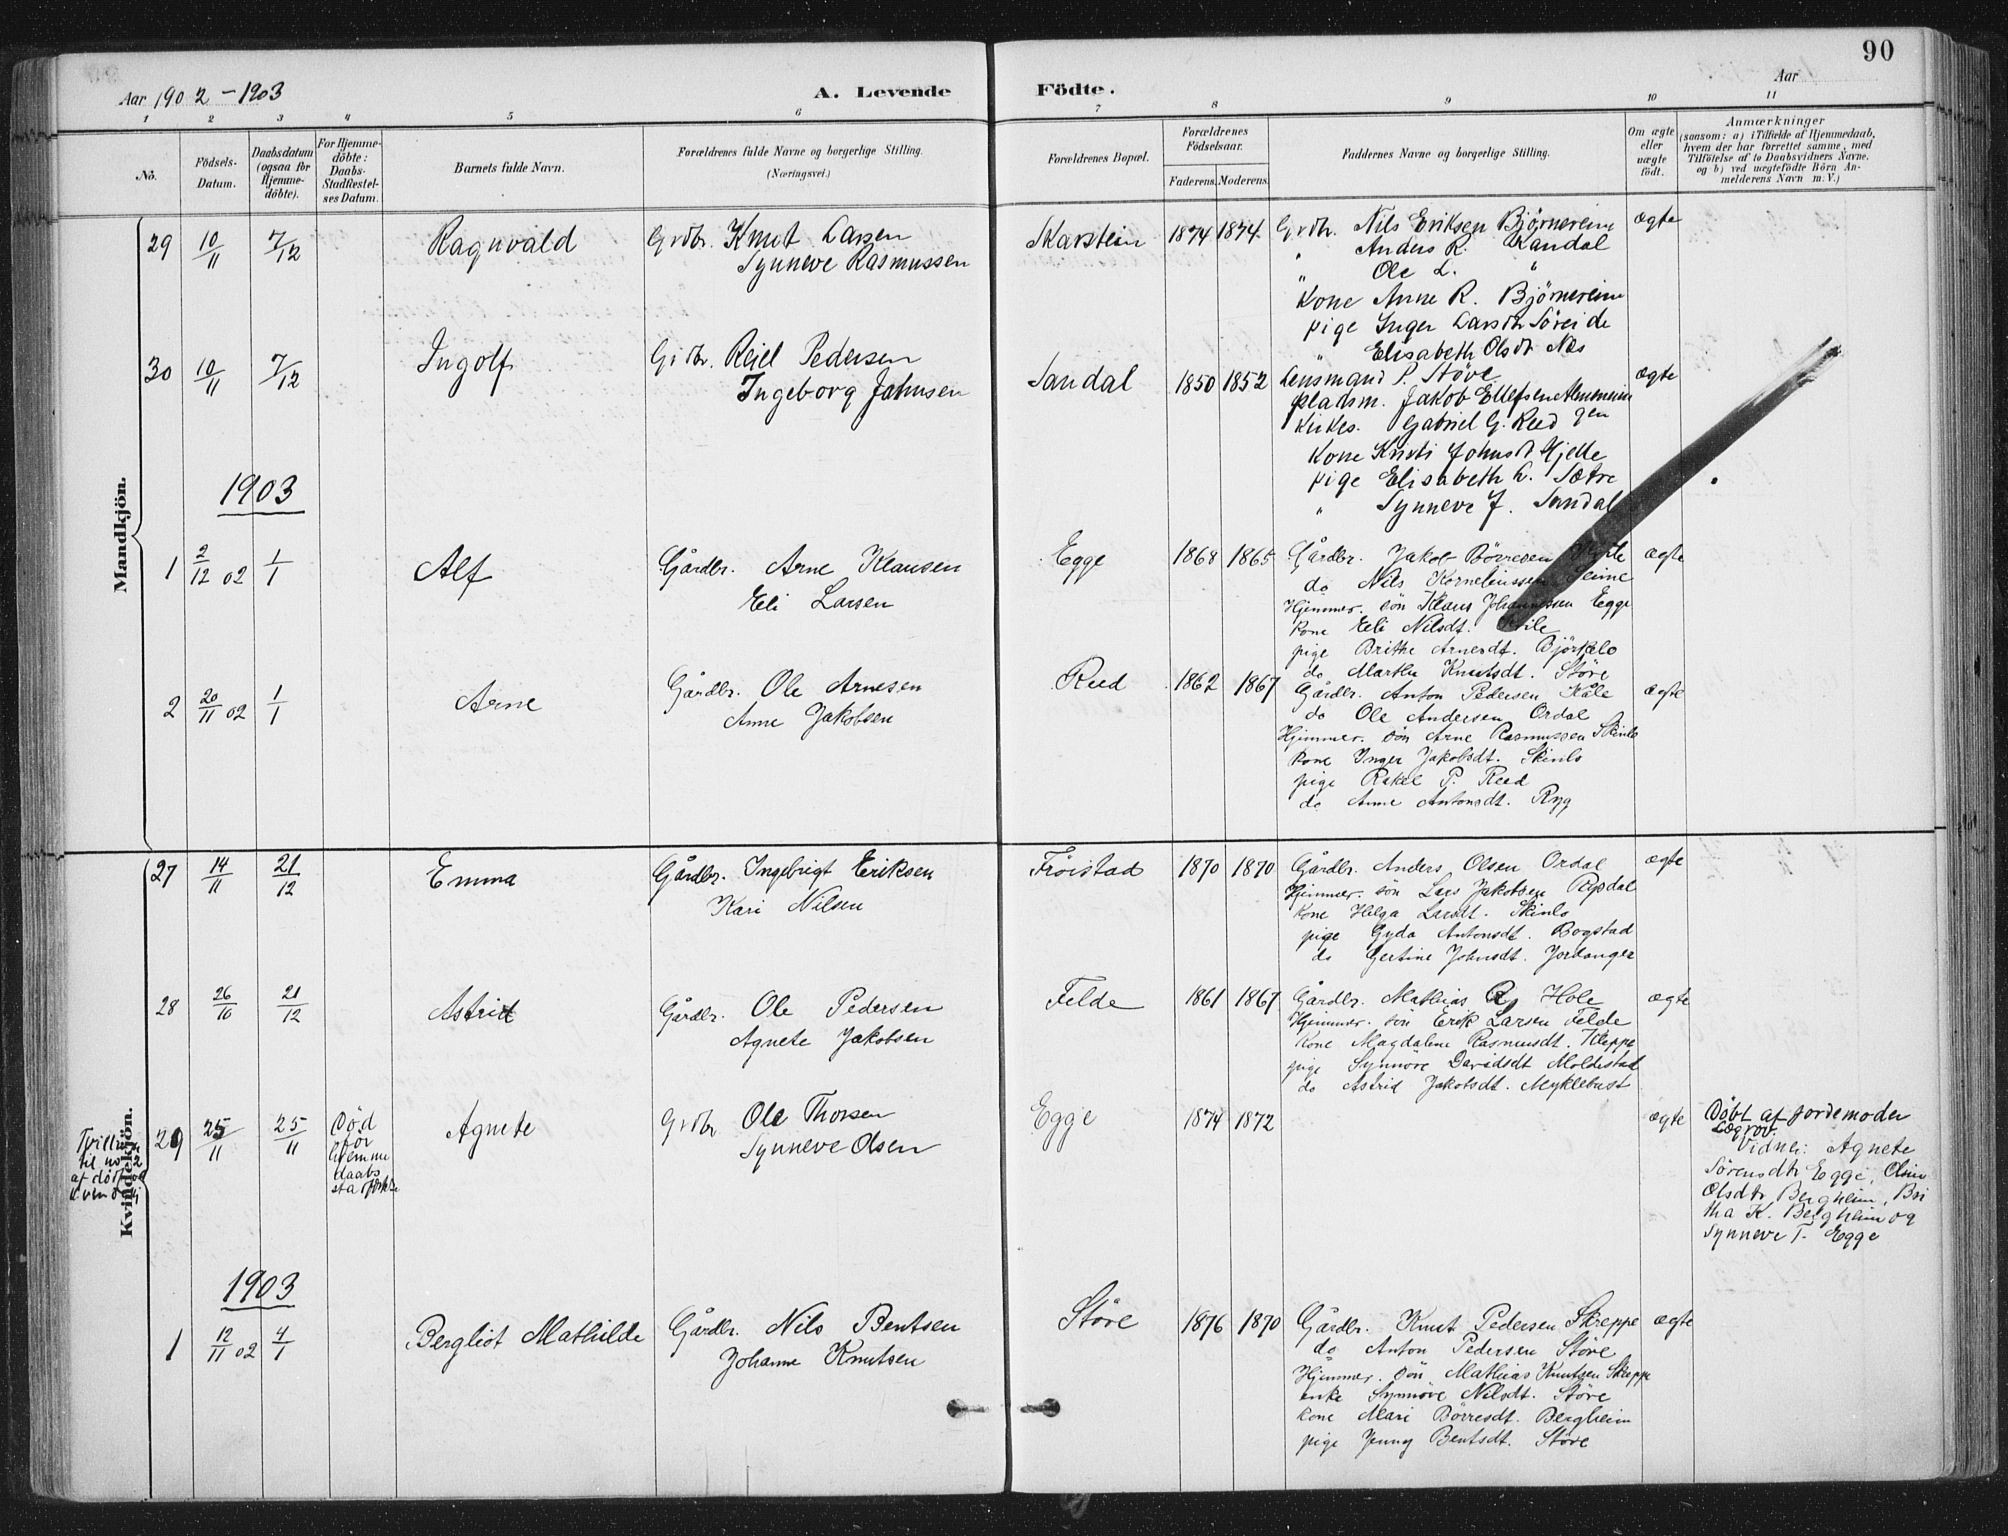 90
Aar 1902 - 1903
A. Levende
Födte.
Aar
1 2 3 4 5 6 7 8 9 10 11
No.
Födsels-Datum.
Daabsdatum (ogsaa for Hjemmedöbte).
For Hjemmedöbte: Daabs-Stadfæstelses Datum.
Barnets fulde Navn.
Forældrenes fulde Navne og borgerlige Stilling.
(Næringsvei.)
Forældrenes Bopæl.
Forældrenes Födselsaar.
Faderens. Moderens.
Faddernes Navne og borgerlige Stilling.
Om ægte eller uægte födt.
Anmærkninger
(saasom: a) i Tilfælde af Hjemmedaab, hvem der har forrettet samme, med Tilföielse af to Daabsvidners Navne. og b) ved uægtefödte Börn Anmelderens Navn m. V.)
Mandkjön.
29 10/11 7/12 Ragnvald Grdbr. Knut Larsen
Synneve Rasmussen
Skarstein 1874 1874 Grdbr. Nils Eriksen Bjørnereim ægte
" Anders R. Sandal
" Ole L. "
Kone Anne R. Bjørnereim
pige Inger Larsdtr Søreide
" Elisabeth Olsdtr Næs
30 10/11 7/12 Ingolf Grdbr. Reiel Pedersen
Ingeborg Johnsen
Sandal 1850 1852 Lensmand P. Støve ægte
pladsm. Jakob Ellefsen
Kirkes. Gabriel G. Reed
Kone Kristi Johnsdt Hjelle
pige Elisabeth L. Sætre
" Synneve J. Sandal
1903
1 2/12 02 1/1 Alf Gårdbr. Arne Klausen
Eli Larsen
Egge 1868 1865 Gårdbr. Jakob Børresen ægte
do Nils Korneliussen Heime
Hjemmev. søn Klaus Johannessen Egge
kone Eli Nilsdt. Kvile
pige Brithe Arnesdt. Björkelo
do Marthe Knutsdt. Støre
2 20/11 02 1/1 Arne Gårdbr. Ole Arnesen
Anne Jakobsen
Reed 1862 1867 Gårdbr. Anton Pedersen Kåle ægte
do Ole Andersen Ordal
Hjemmev. søn Arne Rasmussen Skinlo
kone Inger Jakobsdt. Skinlo
pige Rakel P. Reed
do Anne Antonsdt. Ryg
Kvindekjön.
27 14/11 21/12 Emma Gårdbr. Ingebrigt Eriksen
Kari Nilsen
Frøistad 1870 1870 Gårdbr. Anders Olsen Ordal ægte
Hjemmev. søn Lars Jakobsen Rysdal
kone Helga Larsdt. Skinlo
pige Gyda Antonsdt. Bogstad
do Gertine Johnsdt. Jordanger
28 26/10 21/12 Astrid Gårdbr. Ole Pedersen
Agnete Jakobsen
Felde 1861 1867 Gårdbr. Mathias R. Hole ægte
Hjemmev. søn Erik Larsen Felde
kone Magdalene Rasmusdt. Kleppe
pige Synnøve Davidsdt Moldestad
do Astrid Jakobsdt. Myklebust
29 25/11 25/11 Død før hjemmedaabs Agnete Grdbr Ole Thorsen
Synneve Olsen
Egge 1874 1872 ægte Døbt af Jordemoder
Vidner: Agnete
Sörensdtr Egge,
Olsdtr Bergheim, Bri
tha K. Bergheim og
Synneve T. Egge
Tvilling
til no 2
af dødf
1903
1 12/11 02 4/1 Bergliot Mathilde Gårdbr. Nils Bentsen
Johanne Knutsen
Støre 1876 1870 Gårdbr. Knut Pedersen Skreppe ægte
do Anton Pedersen Støre
Hjemmev. søn Mathias Knutsen Skreppe
enke Synnøve Nilsdt. Støre
kone Mari Børresdt. Bergheim
pige Jenny Bentsdt. Støre